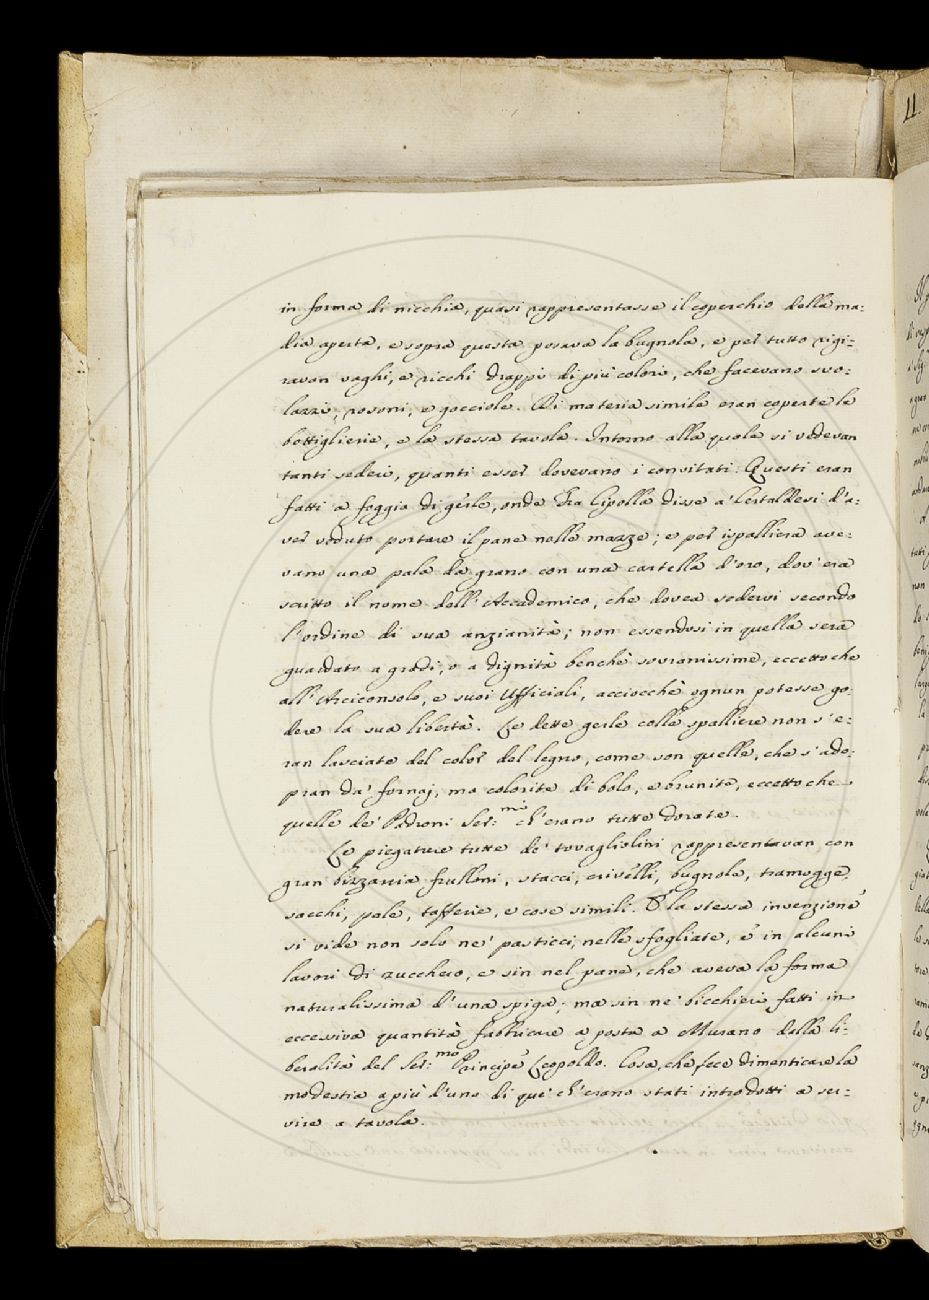 in forma di nicchia, quasi rappresentasse il coperchio della ma:
dia aperta, e sopra questa posava la bugnola, e per tutto rigi=
ravan vaghi, e ricchi drappi di più colori, che facevano svo:
lazzi, rosoni, e gocciole. Di materia simile eran coperte le
bottiglierie, e la stessa tavola. Intorno alla quale si vedevan
tanti sederi, quanti esser dovevano i convitati. Questi eran
fatti a foggia di gerle, onde Fra Cipolla disse a' Certaldesi d'a:
ver veduto portare il pane nelle mazze; e per ispalliera ave:
vano una pala da grano con una cartella d'oro, dov'era
scritto il nome dell'Accademico, che dovea sedervi secondo
l'ordine di sua anzianità; non essendosi in quella sera
guardato a gradi, o a dignità benchè sovranissime, eccetto che
all'Arciconsolo, e suoi Ufficiali, acciocchè ognun potesse go:
dere la sua libertà. Le dette gerle colle spalliere non s'e:
ran lasciate del color del legno, come son quelle, che s'ado:
pran da' fornaj, ma colorite di bolo, e brunite, eccetto che
quelle de' Padroni Ser:mi ch'erano tutte dorate.
Le piegature tutte de' tovagliolini rappresentavan con
gran bizzarria frulloni, stacci, crivelli, bugnole, tramogge,
sacchi, pale, tafferie, e cose simili. E la stessa invenzione
si vide non solo ne' pasticci, nelle sfogliate, e in alcuni
lavori di zucchero, e sin nel pane, che aveva la forma
naturalissima d'una spiga; ma sin ne' bicchieri fatti in
eccessiva quantità fabbricare a posta a Murano dalla li:
beralità del Ser:mo Principe Leopoldo. Cosa, che fece dimenticare la
modestia a più d'uno di que' ch'erano stati introdotti a ser:
vire a tavola.
11